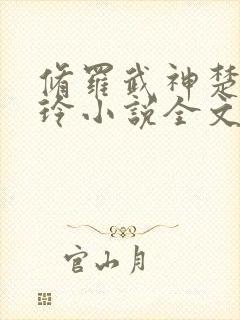 脩羅武神楚
玲小說全文
官山月